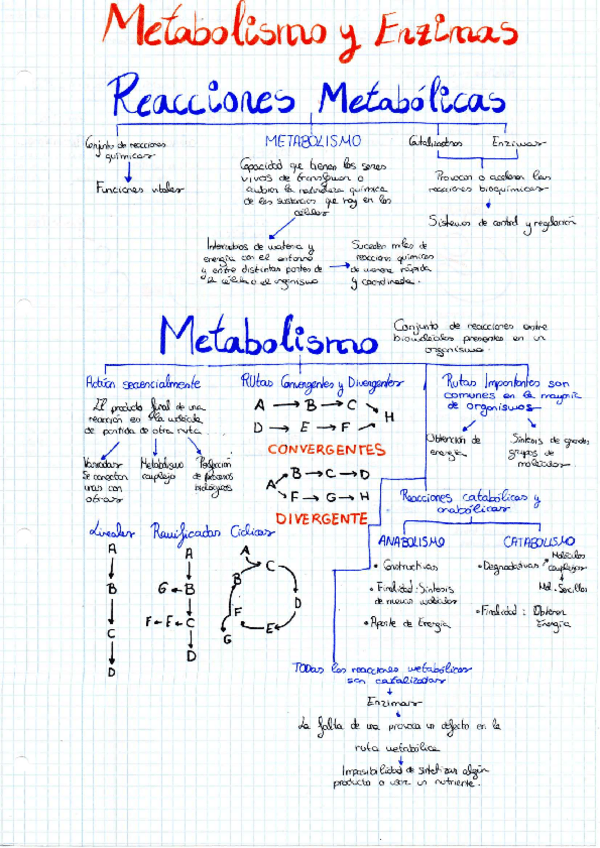 Metabolismo y Enzimas
Reacciones Metabólicas
Conjunto de reacciones
químicas
Funciones vitales
METABOLISMO
Capacidad que tienen los seres
vivos de transformar o
cambiar la naturaleza química
de las sustancias que hay en las
células
Intercambios de materia y
energía con el entorno
y entre distintas partes de
la célula o el organismo
Suceden miles de
reacciones químicas
de manera rápida
y coordinada.
Catalizadores Enzimas
Provocan o aceleran las
reacciones bioquímicas
Sistemas de control y regulación
Metabolismo
Conjunto de reacciones entre
biomoléculas presentes en un
organismo.
Actúan secuencialmente
El producto final de una
reacción es la molécula
de partida de otra ruta...
Variadas
Se conectan
unas con
otras
Metabolismo
complejo
Perfección
de procesos
biológicos
Rutas Convergentes y Divergentes
A → B → C
H
D → E → F
CONVERGENTES
A
B → C → D
F → G → H
DIVERGENTE
Rutas Importantes son
comunes en la mayoría
de organismos
Obtención de
energía
Síntesis de grandes
grupos de
moléculas.
Lineales Ramificadas Cíclicas
A
B
C
D
A
G ← B
F ← E ← C
D
A
C
B
D
F
E
G
Reacciones catabólicas y
anabólicas
ANABOLISMO
• Constructivas
• Finalidad: Síntesis
de nuevas moléculas
• Aporte de Energía
CATABOLISMO
• Degradativas
Moléculas
complejas
Mol. Sencillas
• Finalidad: Obtener
Energía
TODAS las reacciones metabólicas
son catalizadas
Enzimas
La falta de una provoca un defecto en la
ruta metabólica
Imposibilidad de sintetizar algún
producto o usar un nutriente.